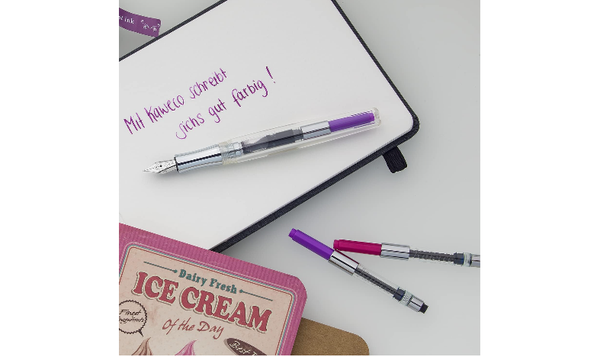 Mit Kaweco schreibt
sichs gut farbig !
Dairy Fresh
ICE CREAM
Of the Day
Finest